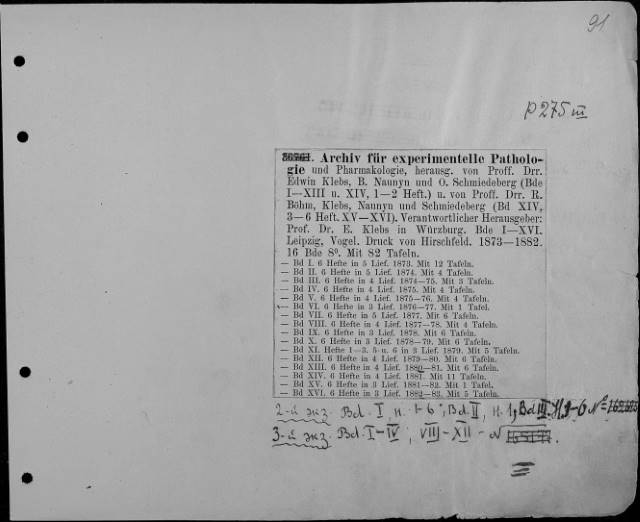 91
p 275 III
Archiv für experimentelle Patholo-
gie und Pharmakologie, herausg. von Proff. Drr.
Edwin Klebs, B. Naunyn und O. Schmiedeberg (Bde
I—XIII u. XIV, 1—2 Heft.) u. von Proff. Drr. R.
Böhm, Klebs, Naunyn und Schmiedeberg (Bd XIV,
3—6 Heft. XV—XVI). Verantwortlicher Herausgeber:
Prof. Dr. E. Klebs in Würzburg. Bde I—XVI.
Leipzig, Vogel. Druck von Hirschfeld. 1873—1882.
16 Bde 8°. Mit 82 Tafeln.
— Bd I. 6 Hefte in 5 Lief. 1873. Mit 12 Tafeln.
— Bd II. 6 Hefte in 5 Lief. 1874. Mit 4 Tafeln.
— Bd III. 6 Hefte in 4 Lief. 1874—75. Mit 3 Tafeln.
— Bd IV. 6 Hefte in 4 Lief. 1875. Mit 4 Tafeln.
— Bd V. 6 Hefte in 4 Lief. 1875—76. Mit 4 Tafeln.
— Bd VI. 6 Hefte in 3 Lief. 1876—77. Mit 1 Tafel.
— Bd VII. 6 Hefte in 5 Lief. 1877. Mit 6 Tafeln.
— Bd VIII. 6 Hefte in 4 Lief. 1877—78. Mit 4 Tafeln.
— Bd IX. 6 Hefte in 3 Lief. 1878. Mit 6 Tafeln.
— Bd X. 6 Hefte in 3 Lief. 1878—79. Mit 6 Tafeln.
— Bd XI. Hefte 1—3. 5 u. 6 in 3 Lief. 1879. Mit 5 Tafeln.
— Bd XII. 6 Hefte in 4 Lief. 1879—80. Mit 6 Tafeln.
— Bd XIII. 6 Hefte in 4 Lief. 1880—81. Mit 6 Tafeln.
— Bd XIV. 6 Hefte in 4 Lief. 1881. Mit 11 Tafeln.
— Bd XV. 6 Hefte in 3 Lief. 1881—82. Mit 1 Tafel.
— Bd XVI. 6 Hefte in 3 Lief. 1882—83. Mit 5 Tafeln.
2-й экз. Bd. I, H. 1-6; Bd. II, H. 1, Bd III. H. 1-6 №
3-й экз. Bd. I-IV, VIII-XII - №